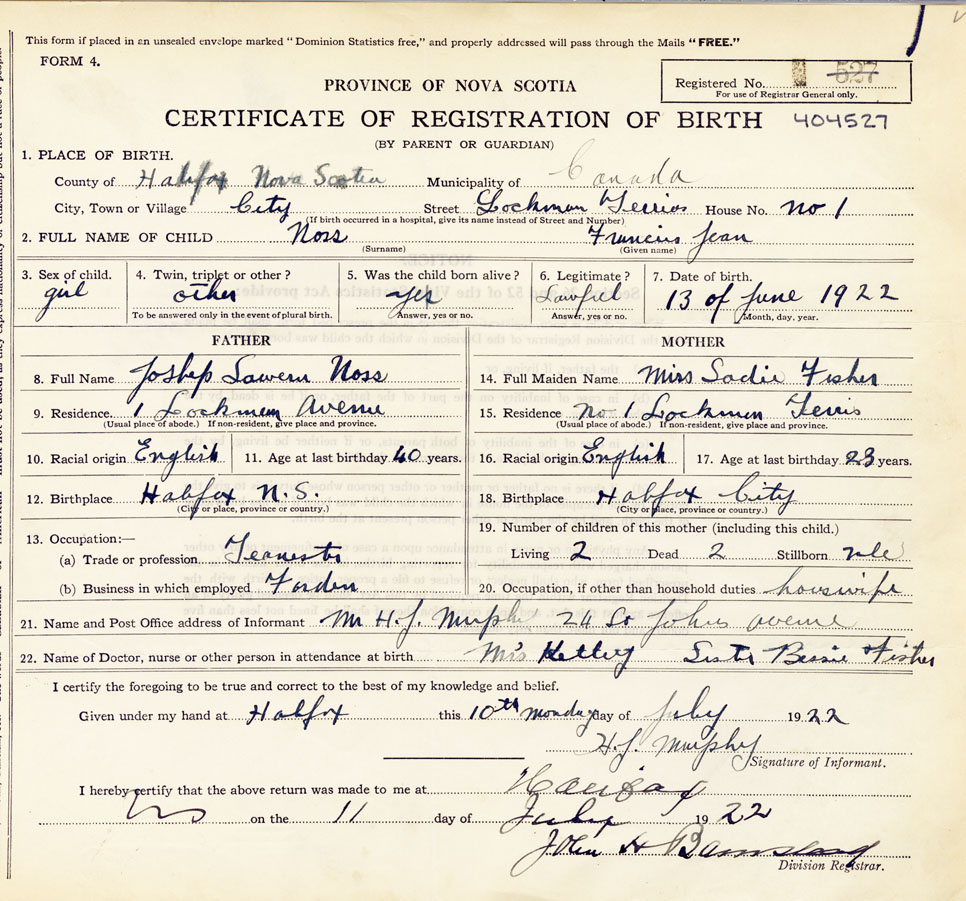 This form if placed in an unsealed envelope marked "Dominion Statistics free," and properly addressed will pass through the Mails "FREE."
FORM 4.
Registered No. 527
For use of Registrar General only.
PROVINCE OF NOVA SCOTIA
CERTIFICATE OF REGISTRATION OF BIRTH 404527
(BY PARENT OR GUARDIAN)
1. PLACE OF BIRTH.
County of Halifax Nova Scotia Municipality of Canada
City, Town or Village City Street Lockman Terris House No. no 1
(If birth occurred in a hospital, give its name instead of Street and Number)
2. FULL NAME OF CHILD Noss Francius Jean
(Surname) (Given name)
3. Sex of child. 4. Twin, triplet or other? 5. Was the child born alive? 6. Legitimate? 7. Date of birth.
girl other yes Lawful 13 of June 1922
To be answered only in the event of plural birth. Answer, yes or no. Answer, yes or no. Month, day, year.
FATHER MOTHER
8. Full Name Joshep Lawern Noss 14. Full Maiden Name Miss Sadie Fisher
9. Residence. 1 Lockman Avenue 15. Residence no 1 Lockman Terris
(Usual place of abode.) If non-resident, give place and province. (Usual place of abode.) If non-resident, give place and province.
10. Racial origin English 11. Age at last birthday 40 years. 16. Racial origin English 17. Age at last birthday 23 years.
12. Birthplace Halifax N.S. 18. Birthplace Halifax City
(City or place, province or country.) (City or place, province or country.)
19. Number of children of this mother (including this child.)
13. Occupation:—
(a) Trade or profession Living 2 Dead 2 Stillborn
(b) Business in which employed 20. Occupation, if other than household duties houswife
21. Name and Post Office address of Informant Mr H.J. Murphy 24 St Johns avenue
22. Name of Doctor, nurse or other person in attendance at birth Mrs Kelley Sister Bessie Fisher
I certify the foregoing to be true and correct to the best of my knowledge and belief.
Given under my hand at Halifax this 10th monday day of July 1922
H.J. Murphy
Signature of Informant.
I hereby certify that the above return was made to me at Halifax
NS on the 11 day of July 1922
John H
Division Registrar.